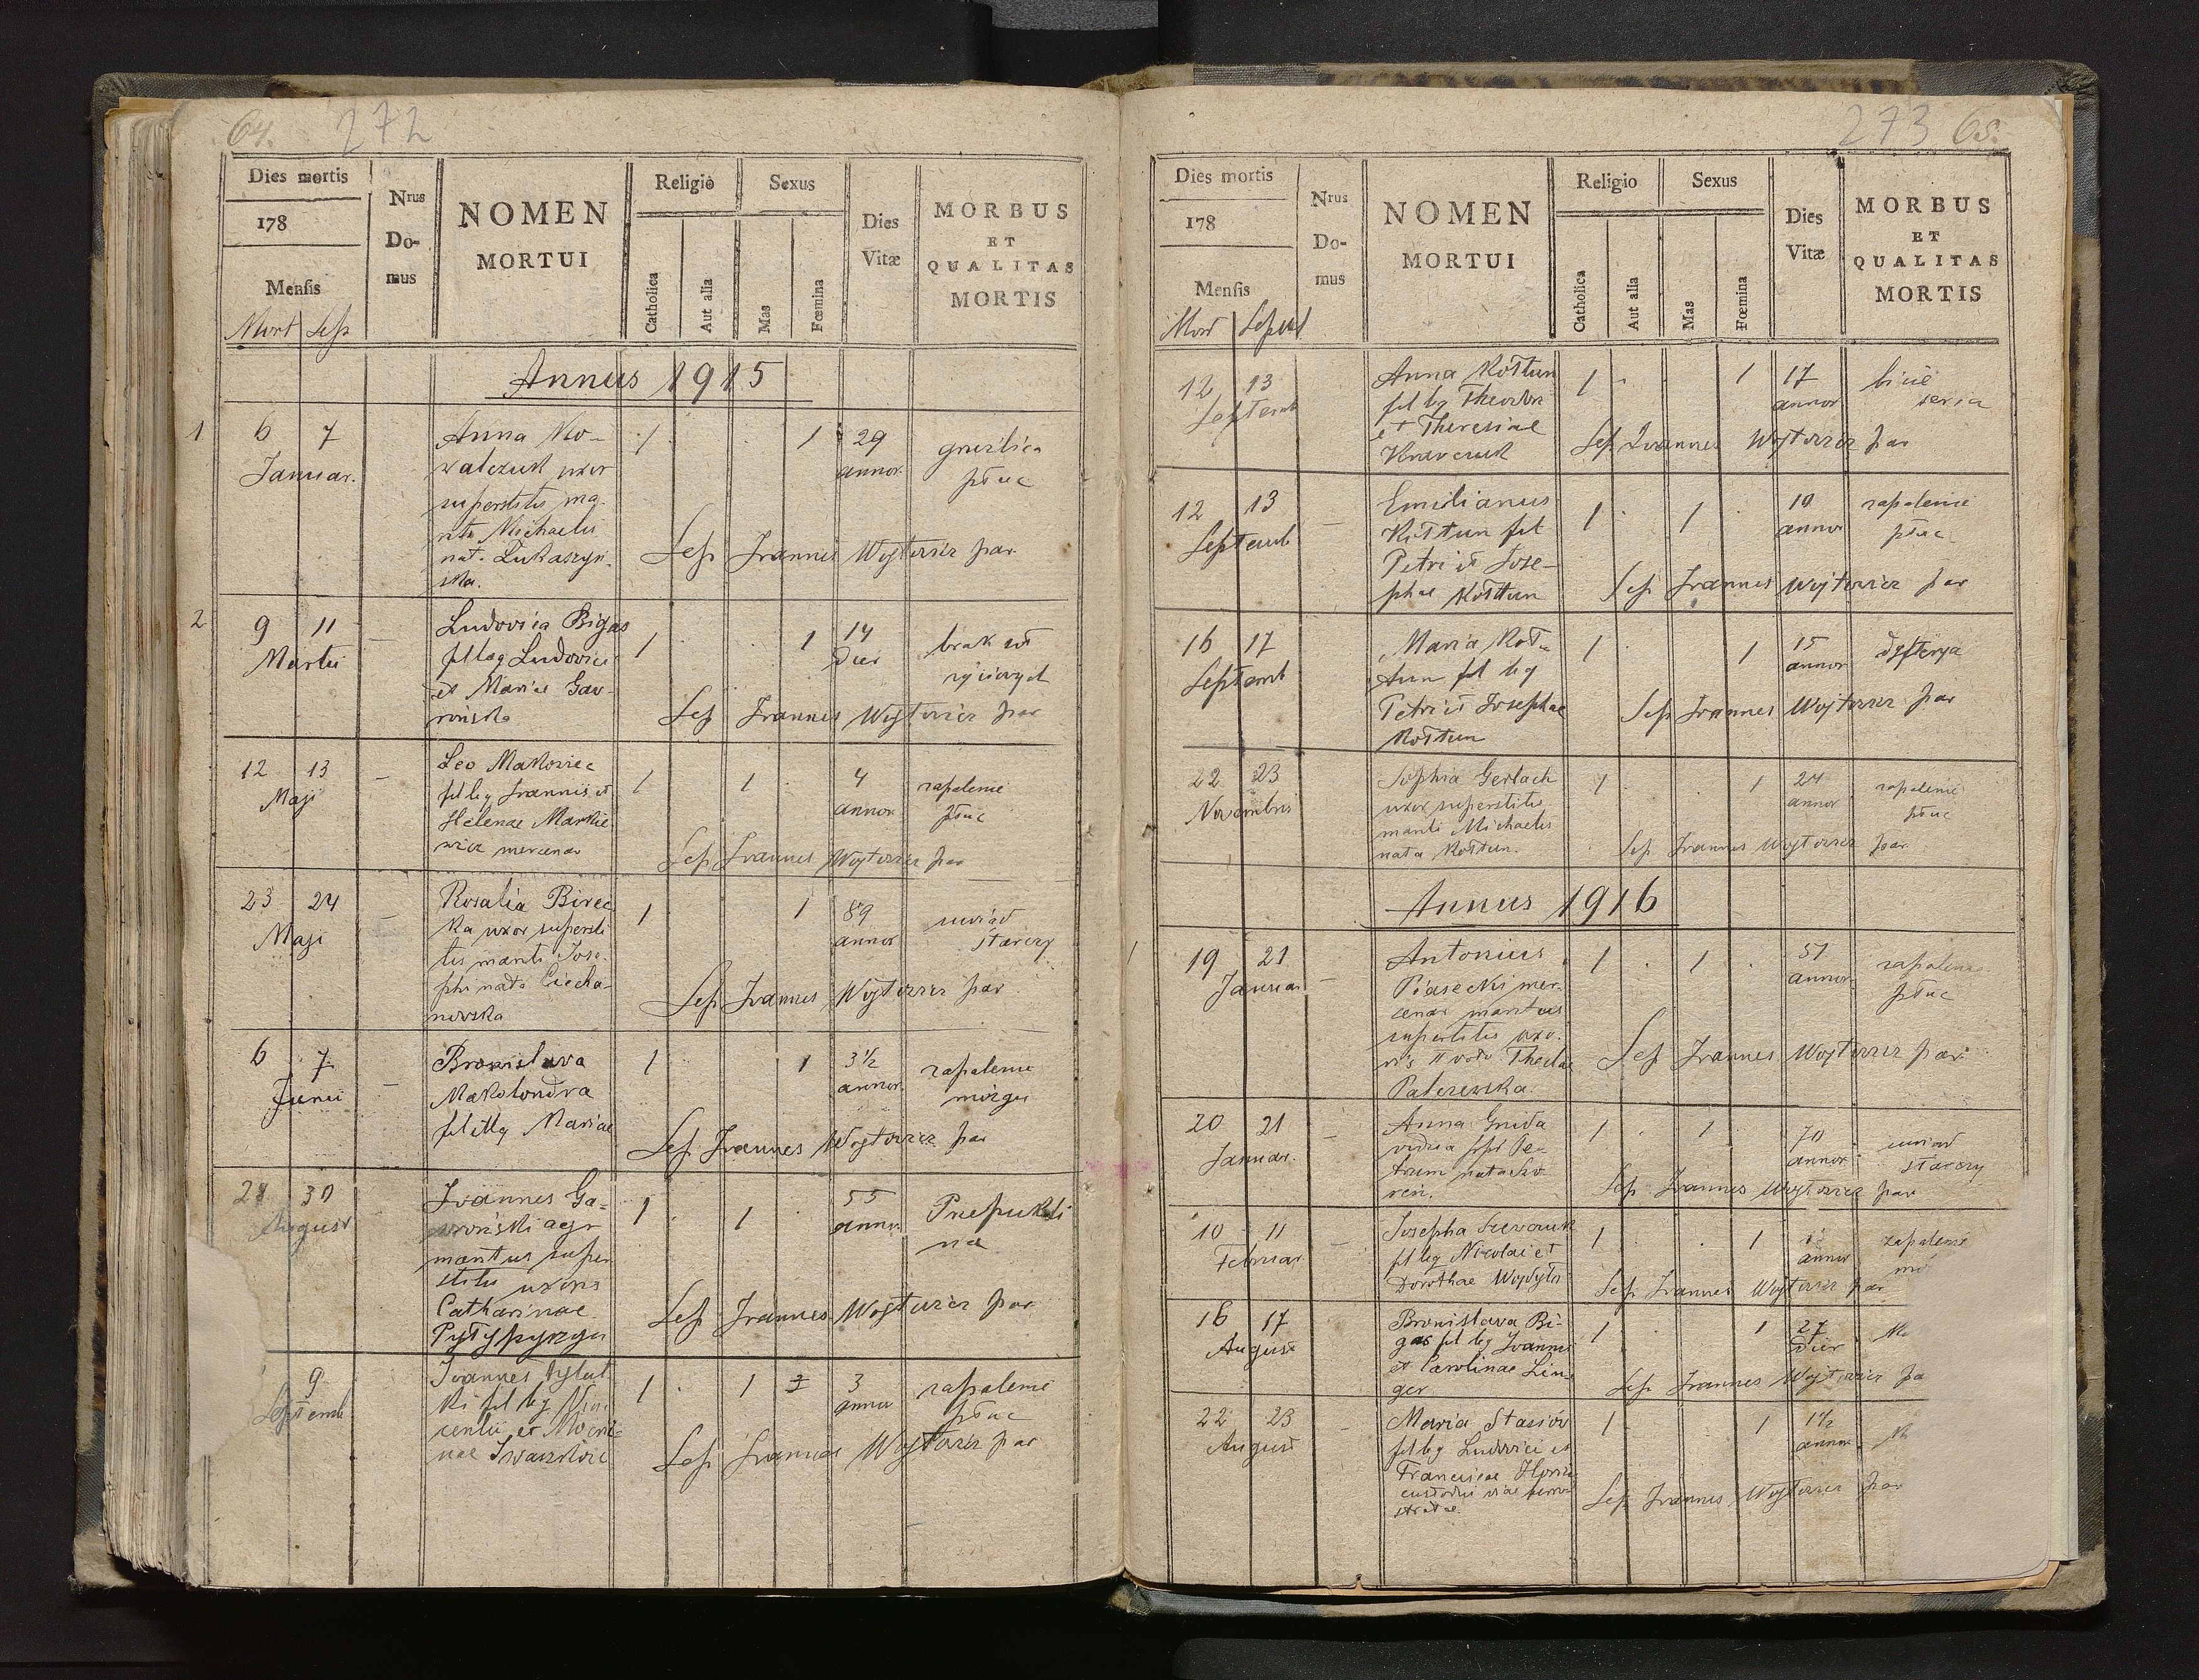 64. 272
Dies mortis
178
Mensis
Mort Sep
Nrus
Do-
mus
NOMEN
MORTUI
Religio
Catholica
Aut alia
Sexus
Mas
Fœmina
Dies
Vitæ
MORBUS
ET
QUALITAS
MORTIS
Annus 1915
1 6 7 Anna Ko- 1 1 29 gruźlica
Januar. walczuk uxor annor. płuc
superstitis ma-
riti Michaelis
nat. Łukaszyń-
ska.
Sep Joannes Wojtowicz par
2 9 11 Ludovica Bigas 1 1 14 brak sił
Martii fil leg Ludovici dier życiowych
et Mariae Gaw-
rońska
Sep Joannes Wojtowicz par
12 13 Leo Makowiec 1 1 4 zapalenie
Maji fil leg Joannis et annor płuc
Helenae Markie-
wicz mercenar
Sep Joannes Wojtowicz par
23 24 Rosalia Birec 1 1 89 uwiąd
Maji ka uxor supersti annor starczy
tis mariti Jose-
phi nata Ciecha-
nowska
Sep Joannes Wojtowicz par
6 7 Bronislava 1 1 3 1/2 zapalenie
Junii Makolondra annor mózgu
fil illeg Mariae
Sep Joannes Wojtowicz par
28 30 Joannes Ga- 1 1 55 Przepukli
August wroński agr annor na
maritus super
stitis uxoris
Catharinae
Pytypyngu
Sep Joannes Wojtowicz par
9 Joannes 1 1 3 zapalenie
Septemb ki fil leg annor płuc
centii et
nae Iwaszkow
Sep Joannes Wojtowicz par
273 65.
Dies mortis
178
Mensis
Mort Sepul
Nrus
Do-
mus
NOMEN
MORTUI
Religio
Catholica
Aut alia
Sexus
Mas
Fœmina
Dies
Vitæ
MORBUS
ET
QUALITAS
MORTIS
12 13 Anna Kołtun 1 1 17 bicie
Septemb fil leg Theodori annor serca
et Theresiae
Krawczuk
Sep Joannes Wojtowicz par
12 13 Emilianus 1 1 10 zapalenie
Septemb Kołtun fil annor płuc
Petri et Jose-
phae Kołtun
Sep Joannes Wojtowicz par
16 17 Maria Koł- 1 1 15 dyfterya
Septemb tun fil leg annor
Petri et Josephae
Kołtun
Sep Joannes Wojtowicz par
22 23 Sophia Gerlach 1 1 24 zapalenie
Novembris uxor superstitis annor płuc
mariti Michaelis
nata Kołtun.
Sep Joannes Wojtowicz par
Annus 1916
1 19 21 Antonius 1 1 57 zapalenie
Januar Piasecki mer- annor płuc
cenar maritus
superstitis uxo-
ris II voto Theclae
Paterewska
Sep Joannes Wojtowicz par
20 21 Anna Gruda 1 1 70 uwiąd
Januar. vidua post Pe- annor starczy
trum nata
Sep Joannes Wojtowicz par
10 11 Josepha Szewczuk 1 1 zapalenie
Februar fil leg Nicolai et annor mó
Dorothae Wojdyła
Sep Joannes Wojtowicz par
16 17 Bronislava Bi- 1 1 27
August gas fil leg Joannis dier
et Carolinae Lin-
ger
Sep Joannes Wojtowicz pa
22 23 Maria Stasiów 1 1 1 1/2
August fil leg Ludovici et annor
Franciscae
custodis viae ferro
stratae.
Sep Joannes Wojtowicz par